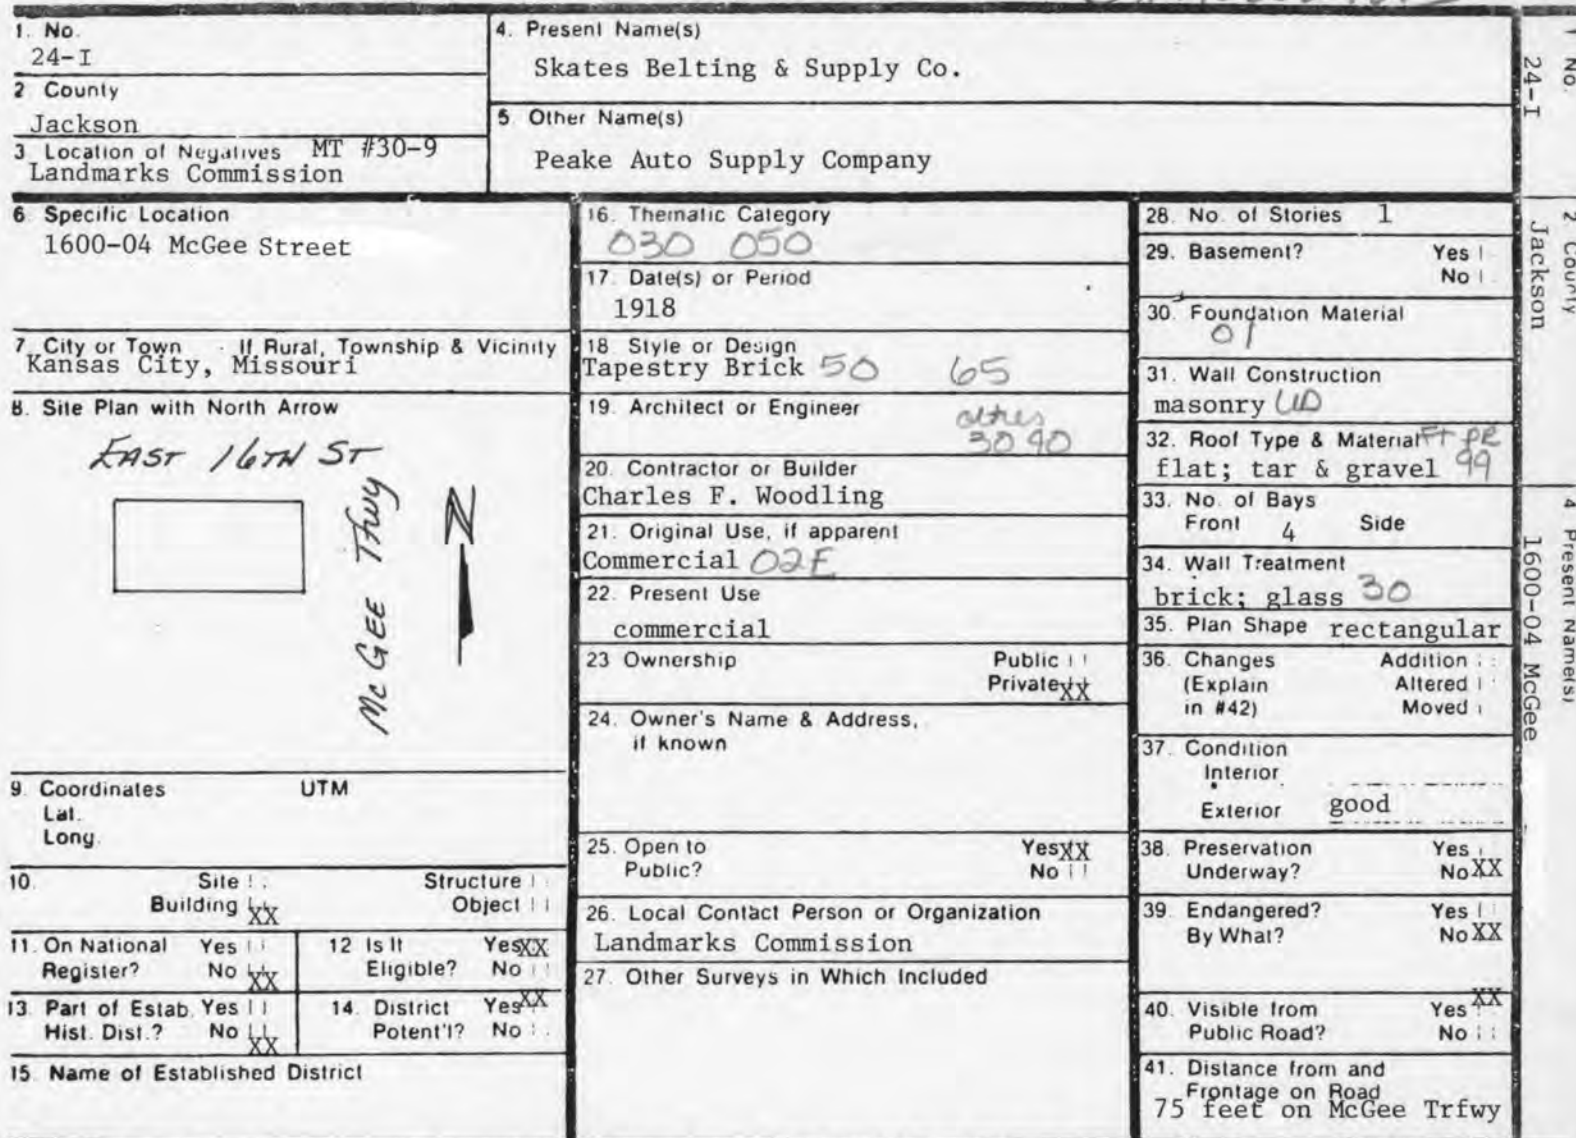 1. No.
24-I
2 County
Jackson
3 Location of Negatives MT #30-9
Landmarks Commission
4. Present Name(s)
Skates Belting & Supply Co.
5. Other Name(s)
Peake Auto Supply Company
6. Specific Location
1600-04 McGee Street
7. City or Town If Rural, Township & Vicinity
Kansas City, Missouri
8. Site Plan with North Arrow
EAST 16TH ST
McGEE Tfwy
N
9. Coordinates UTM
Lat.
Long.
10. Site Structure
Building XX Object
11. On National Yes
Register? No XX
12 Is It Yes XX
Eligible? No
13. Part of Estab. Yes
Hist. Dist.? No XX
14. District Yes XX
Potent'l? No
15. Name of Established District
16. Thematic Category
030 050
17. Date(s) or Period
1918
18. Style or Design
Tapestry Brick 50 65
19. Architect or Engineer
30 90
20. Contractor or Builder
Charles F. Woodling
21. Original Use, if apparent
Commercial 02E
22. Present Use
commercial
23 Ownership Public
Private XX
24. Owner's Name & Address,
if known
25. Open to Yes XX
Public? No
26. Local Contact Person or Organization
Landmarks Commission
27. Other Surveys in Which Included
28. No. of Stories 1
29. Basement? Yes
No
30. Foundation Material
01
31. Wall Construction
masonry UD
32. Roof Type & Material FT PR
flat; tar & gravel 99
33. No. of Bays
Front 4 Side
34. Wall Treatment
brick; glass 30
35. Plan Shape rectangular
36. Changes Addition
(Explain Altered
in #42) Moved
37. Condition
Interior
Exterior good
38. Preservation Yes
Underway? No XX
39. Endangered? Yes
By What? No XX
40. Visible from Yes XX
Public Road? No
41. Distance from and
Frontage on Road
75 feet on McGee Trfwy
1 No.
24-I
2 County
Jackson
4 Present Name(s)
1600-04 McGee